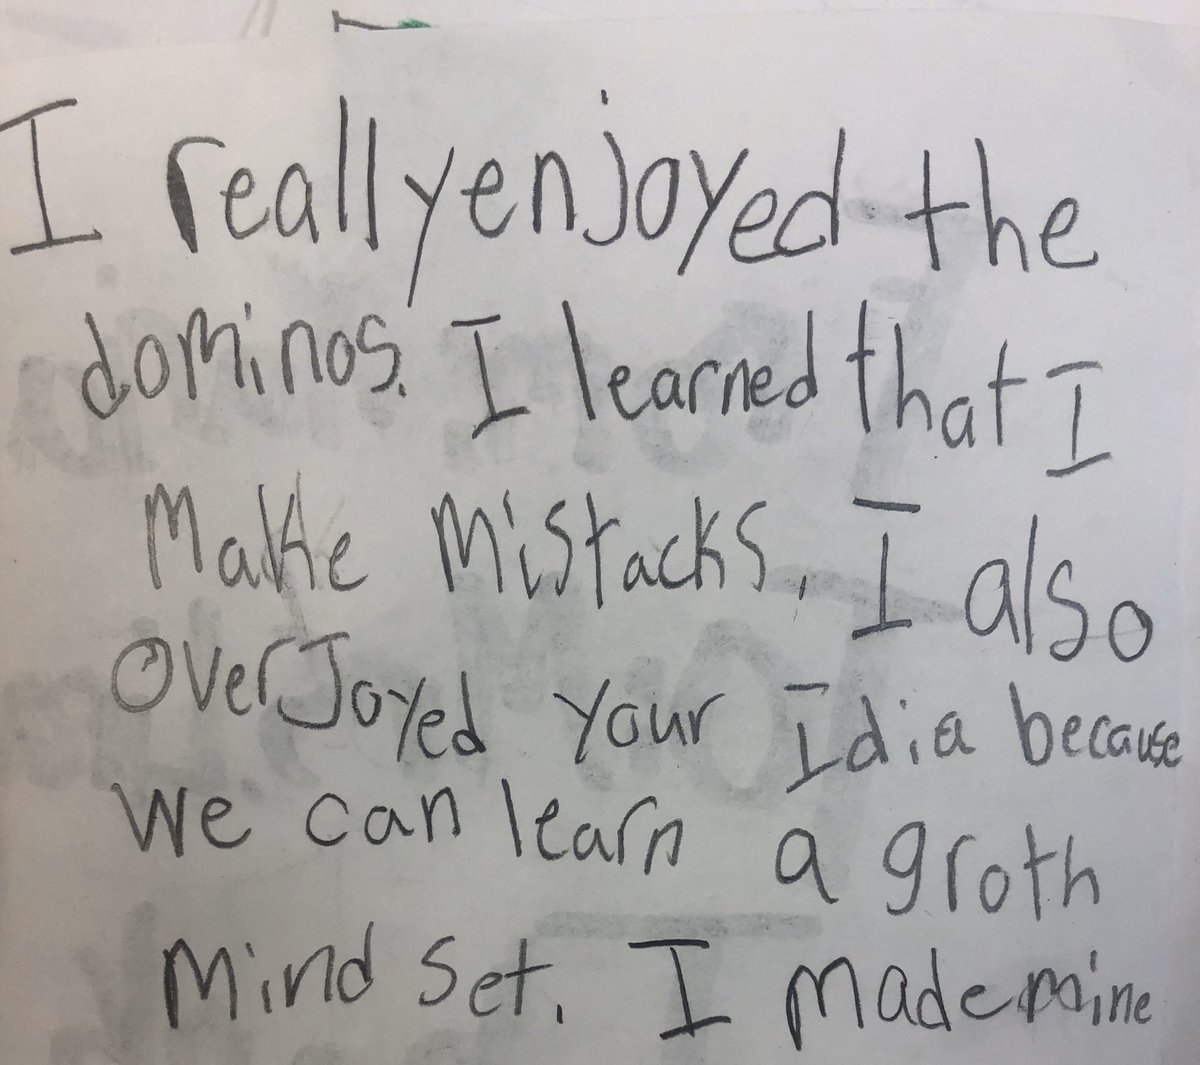 I really enjoyed the
dominos. I learned that I
Make Mistacks. I also
overJoyed your Idia because
we can learn a groth
Mind set. I made mine